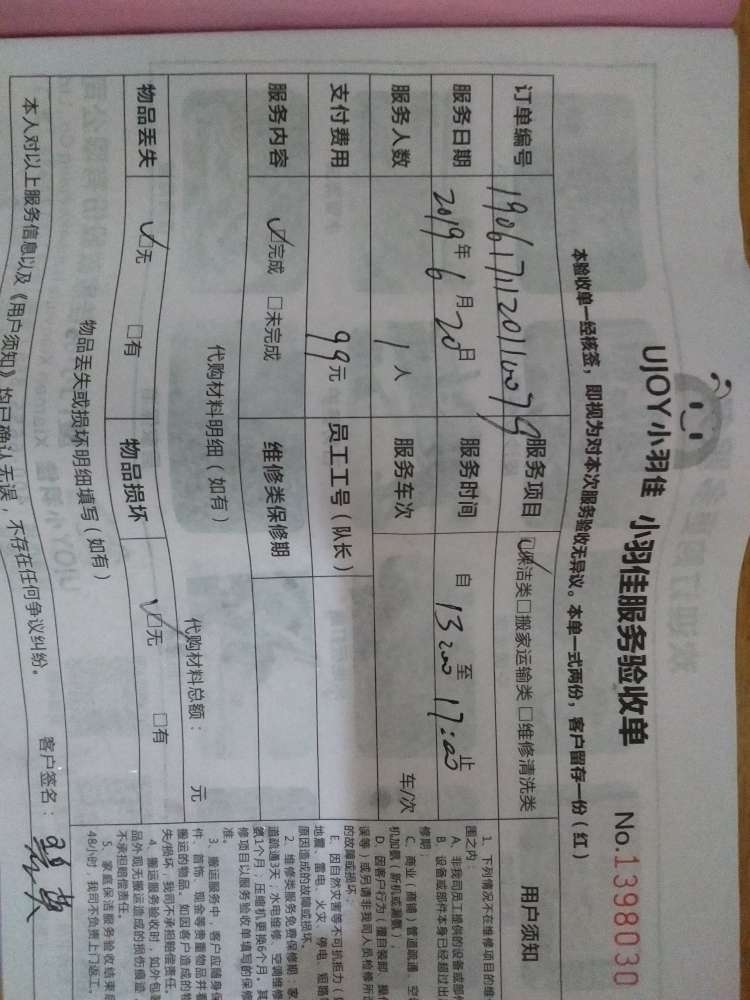 UJOY小羽佳 小羽佳服务验收单 No.1398030
本验收单一经核签，即视为对本次服务验收无异议。本单一式两份，客户留存一份（红）
订单编号 服务项目 ☑保洁类 □搬家运输类 □维修清洗类
服务日期 2019年6月20日 服务时间 自 13:00 至 17:00 止
服务人数 1人 服务车次 车/次
支付费用 99元 员工工号（队长）
服务内容 ☑完成 □未完成 维修类保修期
代购材料明细（如有） 代购材料总额： 元
物品丢失 ☑无 □有 物品损坏 ☑无 □有
物品丢失或损坏明细填写（如有）
本人对以上服务信息以及《用户须知》均已确认无误，不存在任何争议纠纷。 客户签名：
用户须知
1、下列情况不在维修项目的维
围之内：
A、非我司员工提供的设备或部件
B、设备或部件本身已经超过出
修期；
C、商业（商铺）管道疏通、空
机加氨（新机或漏氨）；
D、因客户行为（擅自装卸、操作
误等）或另请非我司人员检修所
的故障或损坏；
E、因自然灾害等不可抗拒力（
地震、雷电、火灾、停电、短路
原因造成的故障或损坏。
2、维修类服务免费保修期：家
道疏通3天；水电维修、空调维修
氨1个月；压缩机更换6个月，其
修项目以服务验收单填写的保修
准。
3、搬运服务中，客户应随身保
件、首饰、现金等贵重物品并看
搬运的物品，如因客户造成的物
失/损坏，我司不承担赔偿责任。
4、搬运服务验收时，如外包装
品外观无搬运造成的损伤痕迹，
不承担赔偿责任。
5、家庭保洁服务验收结束后
48小时，我司不负责上门返工。